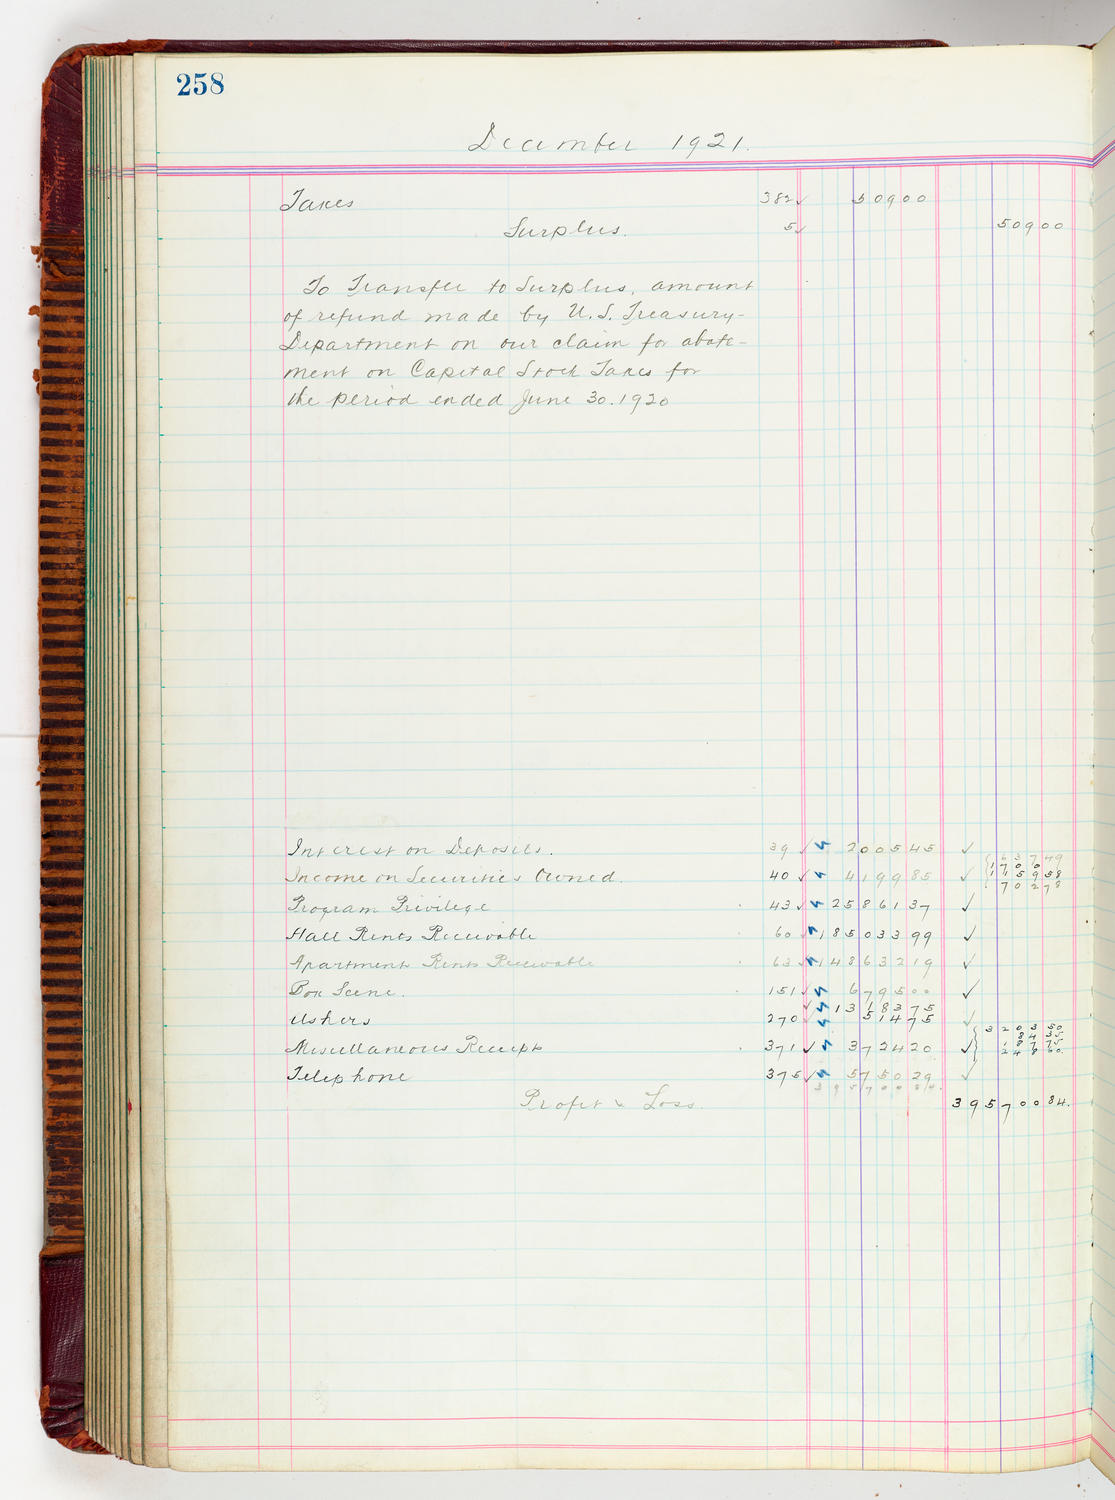 258
December 1921.
Taxes 382 ✓ 509 00
Surplus. 5 ✓ 509 00
To Transfer to Surplus, amount
of refund made by U.S. Treasury-
Department on our claim for abate-
ment on Capital Stock Taxes for
the period ended June 30. 1920
Interest on Deposits. 39 ✓ 2005 45 ✓
Income on Securities Owned. 40 ✓ 4199 85 ✓
Program Privilege 43 ✓ 25861 37 ✓
Hall Rents Receivable 60 ✓ 185033 99 ✓
Apartment Rents Receivable 63 ✓ 148632 19 ✓
Box Scene. 151 ✓ 6795 00 ✓
✓ 13183 75
Ushers 270 ✓ 514 75 ✓
Miscellaneous Receipts 371 ✓ 3724 20 ✓
Telephone 375 ✓ 5750 29 ✓
395700 84.
Profit & Loss. 395700 84.